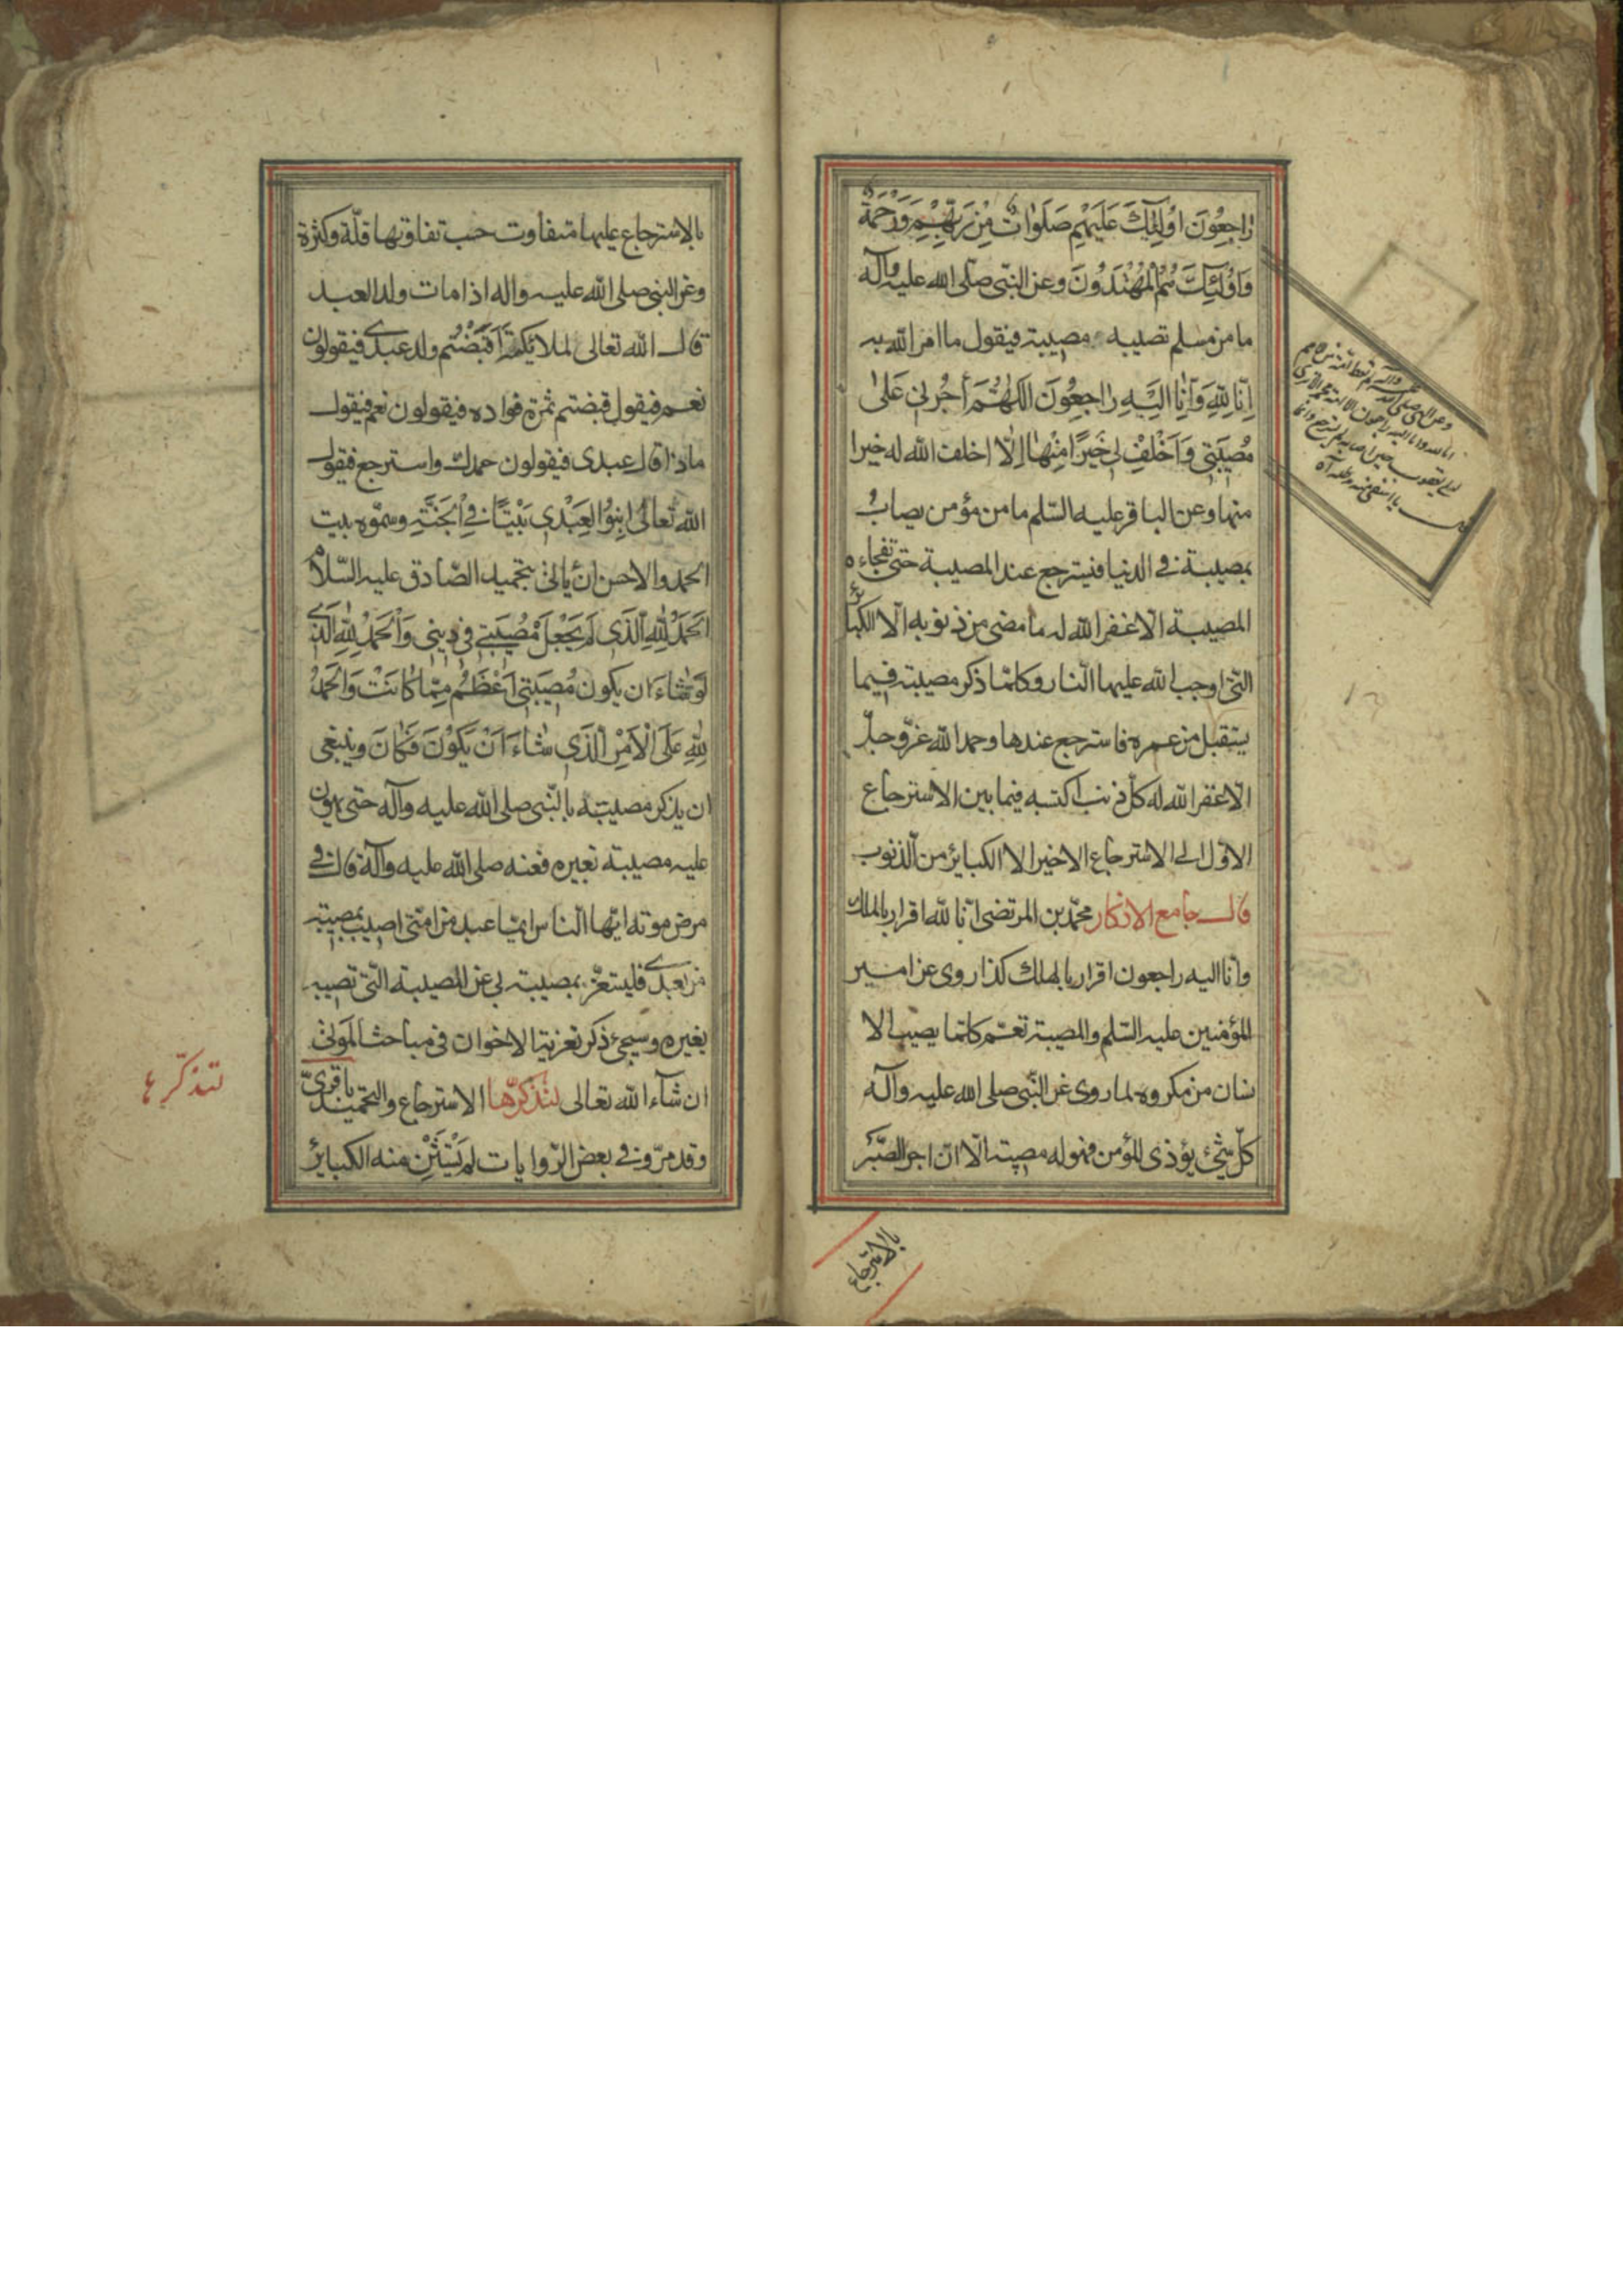 رٰاجِعُونَ اوُلٰئِكَ عَلَيْهِم صَلَوٰاتٌ مِنْ رَبِّهِمْ وَرَحْمَةٌ
وَاوُلٰئِكَ هُمُ الْمُهْتَدُونَ وعن النّبى صلى الله عليه وآله
ما من مسلم تصيبه مصيبة فيقول ما امر الله به
اِنّا لِلّٰهِ وَاِنّٰا اِلَيْهِ رٰاجِعُونَ اَللّٰهُمَّ أجُرْنى عَلىٰ
مُصيبَتى وَاَخْلِفْ لى خَيْرًا مِنْهٰا اِلّا اخلف الله له خيرا
منها وعن الباقر عليه السّلم ما من مؤمن يصاب
بمصيبة فى الدنيا فيسترجع عند المصيبة حتى تفجاءه
المصيبة الا غفر الله له ما مضى من ذنوبه الّا الكبائر
التّى اوجب الله عليها النّار وكلمّا ذكر مصيبته فيما
يستقبل من عمره فاسترجع عندها وحمد الله عزّ وجلّ
الّا غفر الله له كلّ ذنب اكتسبه فيما بين الاسترجاع
الاوّل الى الاسترجاع الاخير الا الكباير من الذنوب
قال جامع الاذكار محمّد بن المرتضى انّا لله اقرار بالملك
وانّا اليه راجعون اقرار بالهلك كذا روى عن امير
المؤمنين عليه السّلم والمصيبة تعمّ كلما يصيب الا
نسان من مكروه لما روى عن النّبى صلى الله عليه وآله
كلّ شىء يؤذى المؤمن فهو له مصيبة الّا انّ اجر الصّبر
وعن النبى صلى الله عليه وآله
انا لله وانا اليه راجعون
بالاسترجاع
بالاسترجاع عليها متفاوت حسب تفاوتها قلّة وكثرة
وعن النبى صلى الله عليه واله اذا مات ولد العبد
قال الله تعالى لملائكته أقبضتم ولد عبدى فيقولون
نعم فيقول قبضتم ثمرة فواده فيقولون نعم فيقول
ماذا قال عبدى فيقولون حمدك واسترجع فيقول
الله تعالى ابنوُا لِعَبْدى بَيْتًا فِى الْجَنَّةِ وسمّوه بيت
الحمد والاحسن ان يأتى بتحميد الصّادق عليه السّلام
اَلحَمْدُ لِلّٰهِ الَّذى لَمْ يَجْعَلْ مُصيبَتى فى دينى وَالْحَمْدُ لِلّٰهِ الَّذى
لَوْ شٰاءَ ان يكون مُصيبَتى اَعْظَمُ مِمّٰا كٰانَتْ وَالْحَمْدُ
لِلّٰهِ عَلَى الْاَمْرِ الَّذى شٰاءَ اَنْ يَكوُنَ فَكٰانَ وينبغى
ان يذكر مصيبته بالنّبى صلى الله عليه وآله حتى يهون
عليه مصيبة بغيره فعنه صلى الله عليه وآله قال فى
مرض موته ايّها النّاس ايّما عبد من امّتى اصيب بمصيبة
من بعدى فليتعزّ بمصيبته بى عن المصيبة التّى تصيبه
بغيره وسيجىء ذكر تعزية الاخوان فى مباحث الموتى
ان شآء الله تعالى لتذكرّها الاسترجاع والتحميد باقرىّ
وقد مرّ وفى بعض الرّوايات لم يَسْتَثْنِ منه الكبايرُ
لتذكّرها